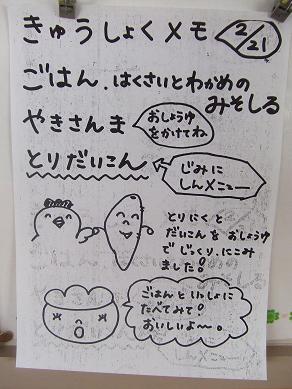 きゅうしょくメモ 2/21
ごはん、はくさいとわかめの
みそしる
やきさんま
おしょうゆ
をかけてね
とりだいこん
じみに
しんメニュー
とりにくと
だいこんを おしょうゆ
で じっくり、にこみ
ました!
ごはんといっしょに
たべてみて!
おいしいよ〜。